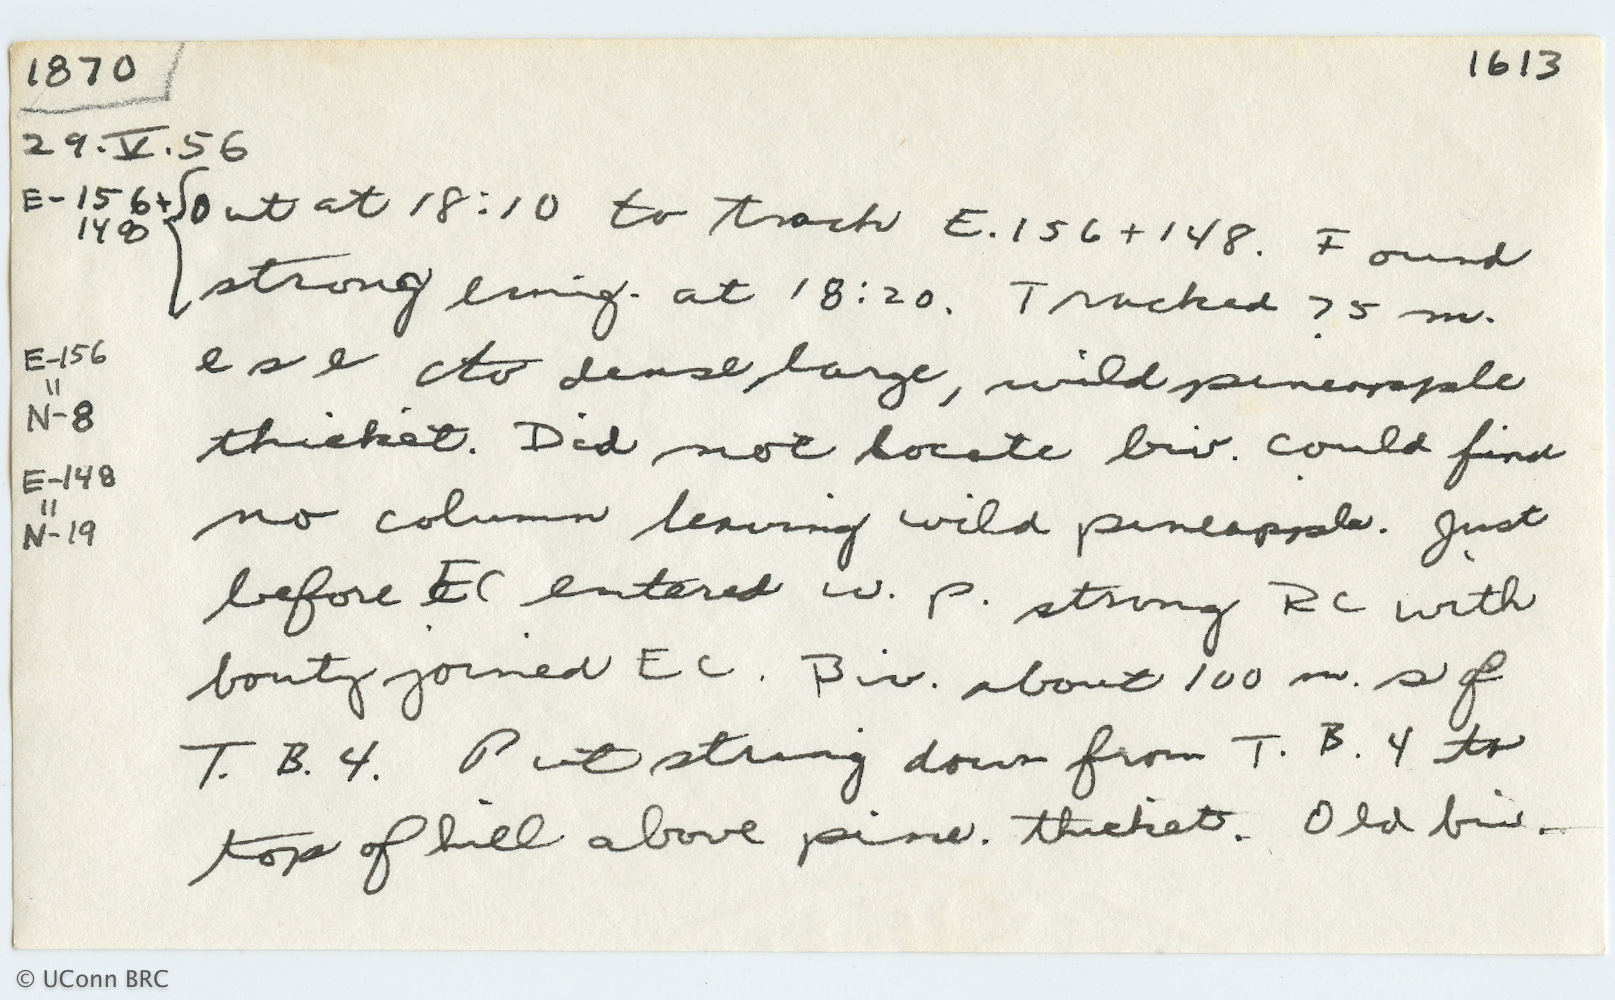 1870
1613
29.V.56
E-156+
148
Out at 18:10 to track E.156+148. Found
strong emig. at 18:20. Tracked 75 m.
ese to dense large, wild pineapple
thicket. Did not locate biv. Could find
no column leaving wild pineapple. Just
before EC entered w. p. strong RC with
booty joined EC. Biv. about 100 m. s of
T. B. 4. Put string down from T. B. 4 to
top of hill above pine. thicket. Old biv.
E-156
"
N-8
E-148
"
N-19
© UConn BRC